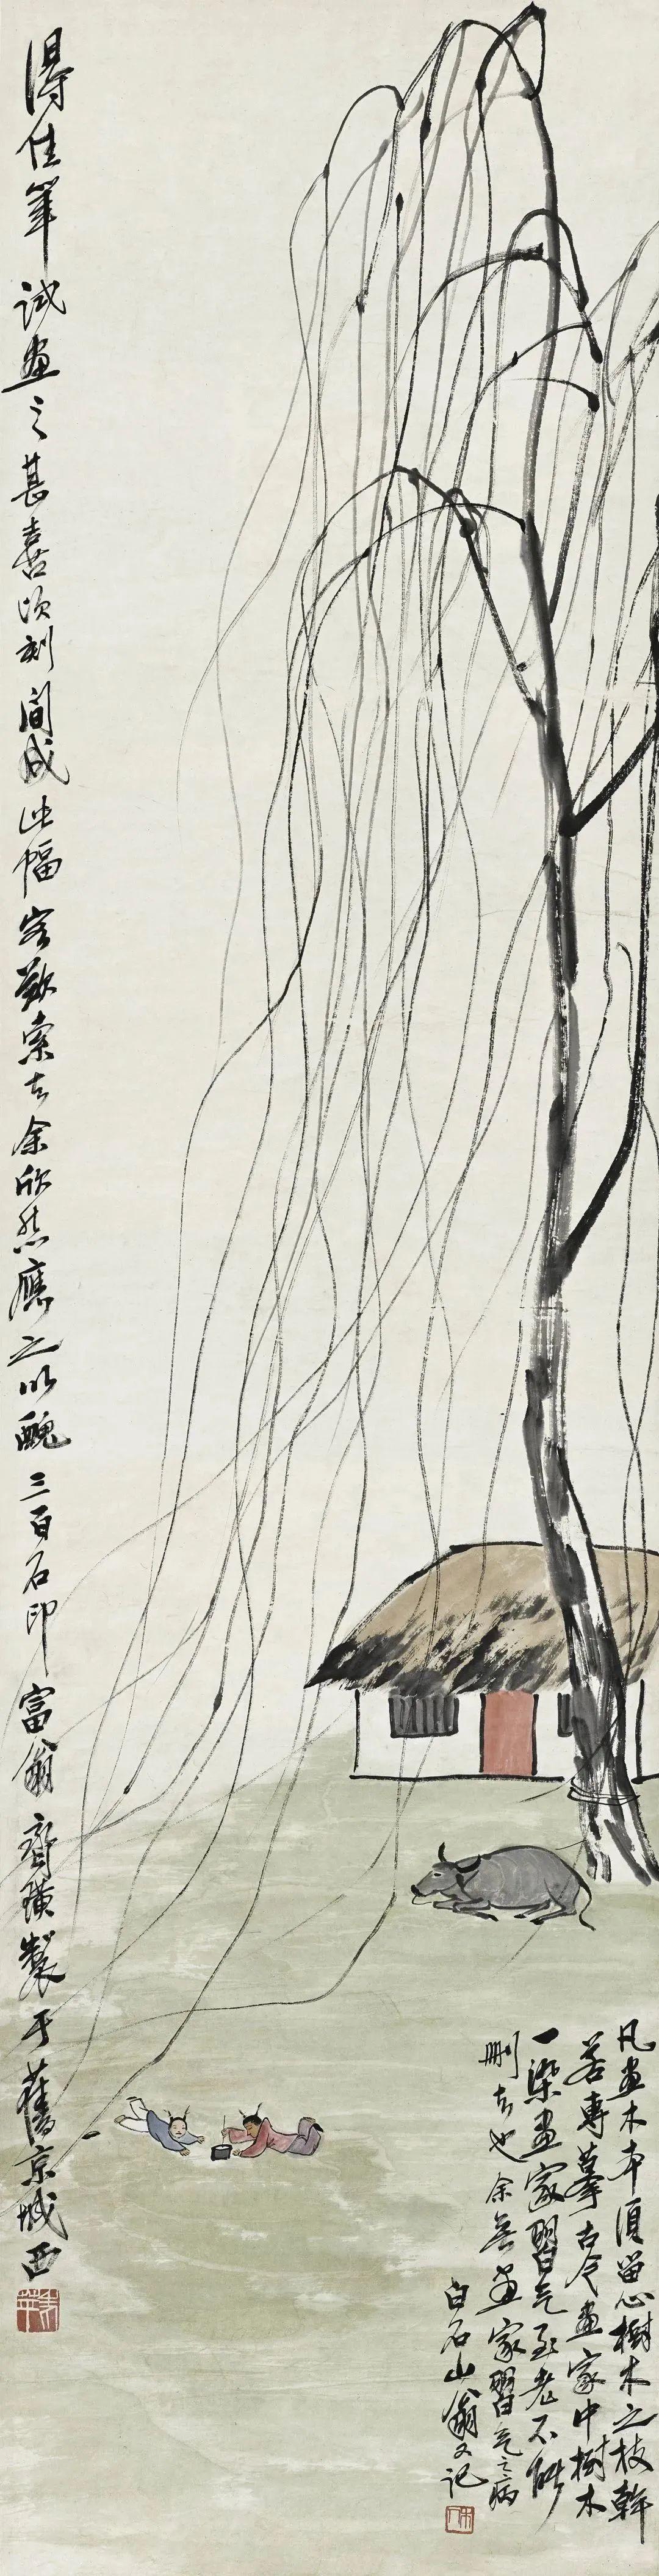 凡画木本须留心树木之枝干
若专摹古今画家中树木
一染画家习气至老不能
删去也余无画家习气之病
白石山翁又记
得佳笔试画之甚喜顷刻间成此幅客欲索去余欣然应之以丑三百石印富翁齐璜制于旧京城西